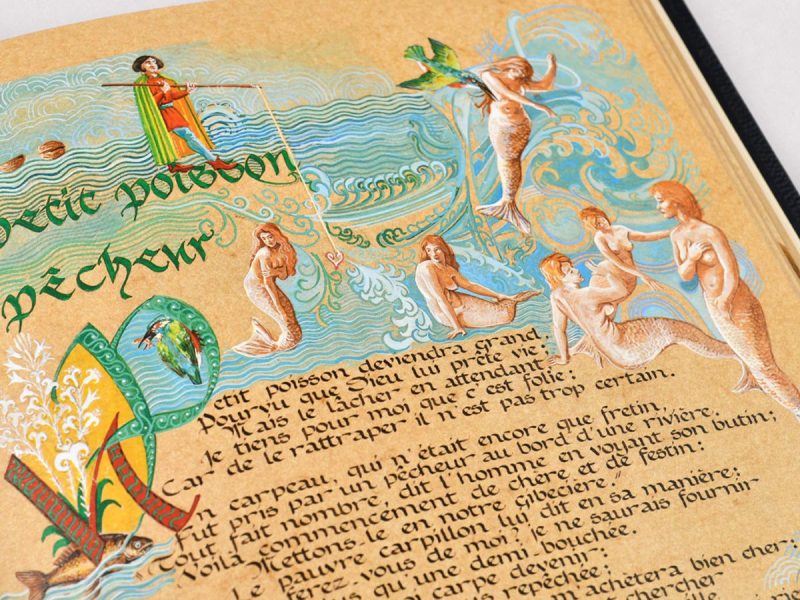 petit poisson
pêcheur
etit poisson deviendra grand,
Pourvu que Dieu lui prête vie;
Mais le lâcher en attendant,
Je tiens pour moi que c'est folie;
Car de le rattraper il n'est pas trop certain.
n carpeau, qui n'était encore que fretin,
Fut pris par un pêcheur au bord d'une rivière.
Tout fait nombre, dit l'homme en voyant son butin;
Voilà commencement de chère et de festin:
Mettons le en notre gibecière."
Le pauvre carpillon lui dit en sa manière;
ferez-vous de moi? je ne saurais fournir
qu'une demi-bouchée.
moi carpe devenir:
repêchée;
m'achètera bien cher;
chercher